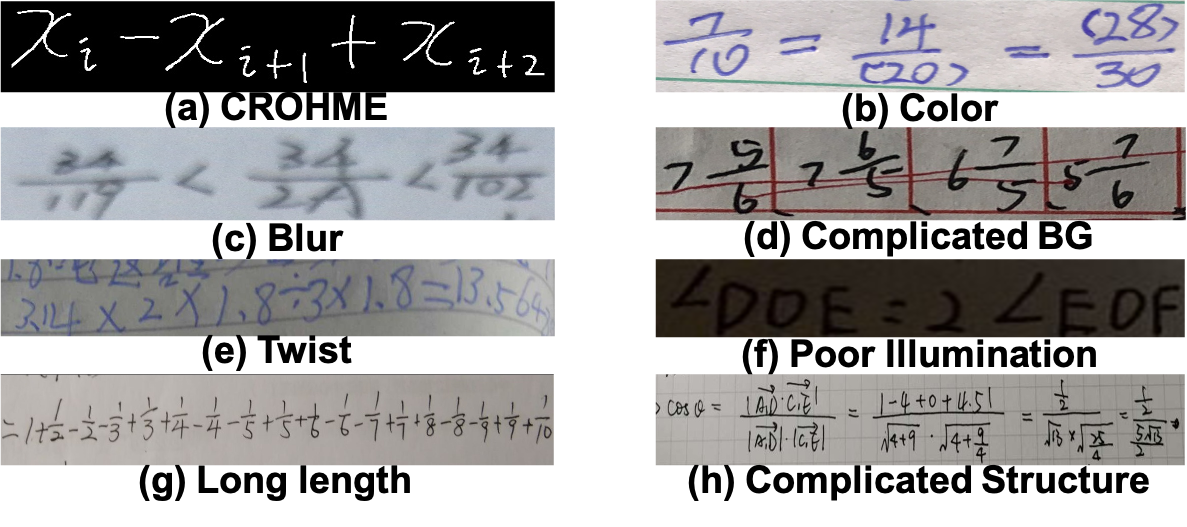 x_i - x_{i+1} + x_{i+2}
(a) CROHME
7/10 = 14/(20) = (28)/30
(b) Color
34/119 < 34/ < 34/102
(c) Blur
7 5/6 7 6/5 6 7/5 5 7/6
(d) Complicated BG
3.14 × 2 × 1.8 ÷ 3 × 1.8 = 13.564
(e) Twist
∠DOE = 2 ∠EOF
(f) Poor Illumination
= 1 + 1/2 - 1/2 - 1/3 + 1/3 + 1/4 - 1/4 - 1/5 + 1/5 + 1/6 - 1/6 - 1/7 + 1/7 + 1/8 - 1/8 - 1/9 + 1/9 + 1/10
(g) Long length
cos θ = |A₁D · C₁E| / |A₁D| · |C₁E| = |-4+0+4.5| / √(4+9) · √(4+9/4) = (1/2) / (√13 × √(25/4)) = (1/2) / (5√13/2)
(h) Complicated Structure